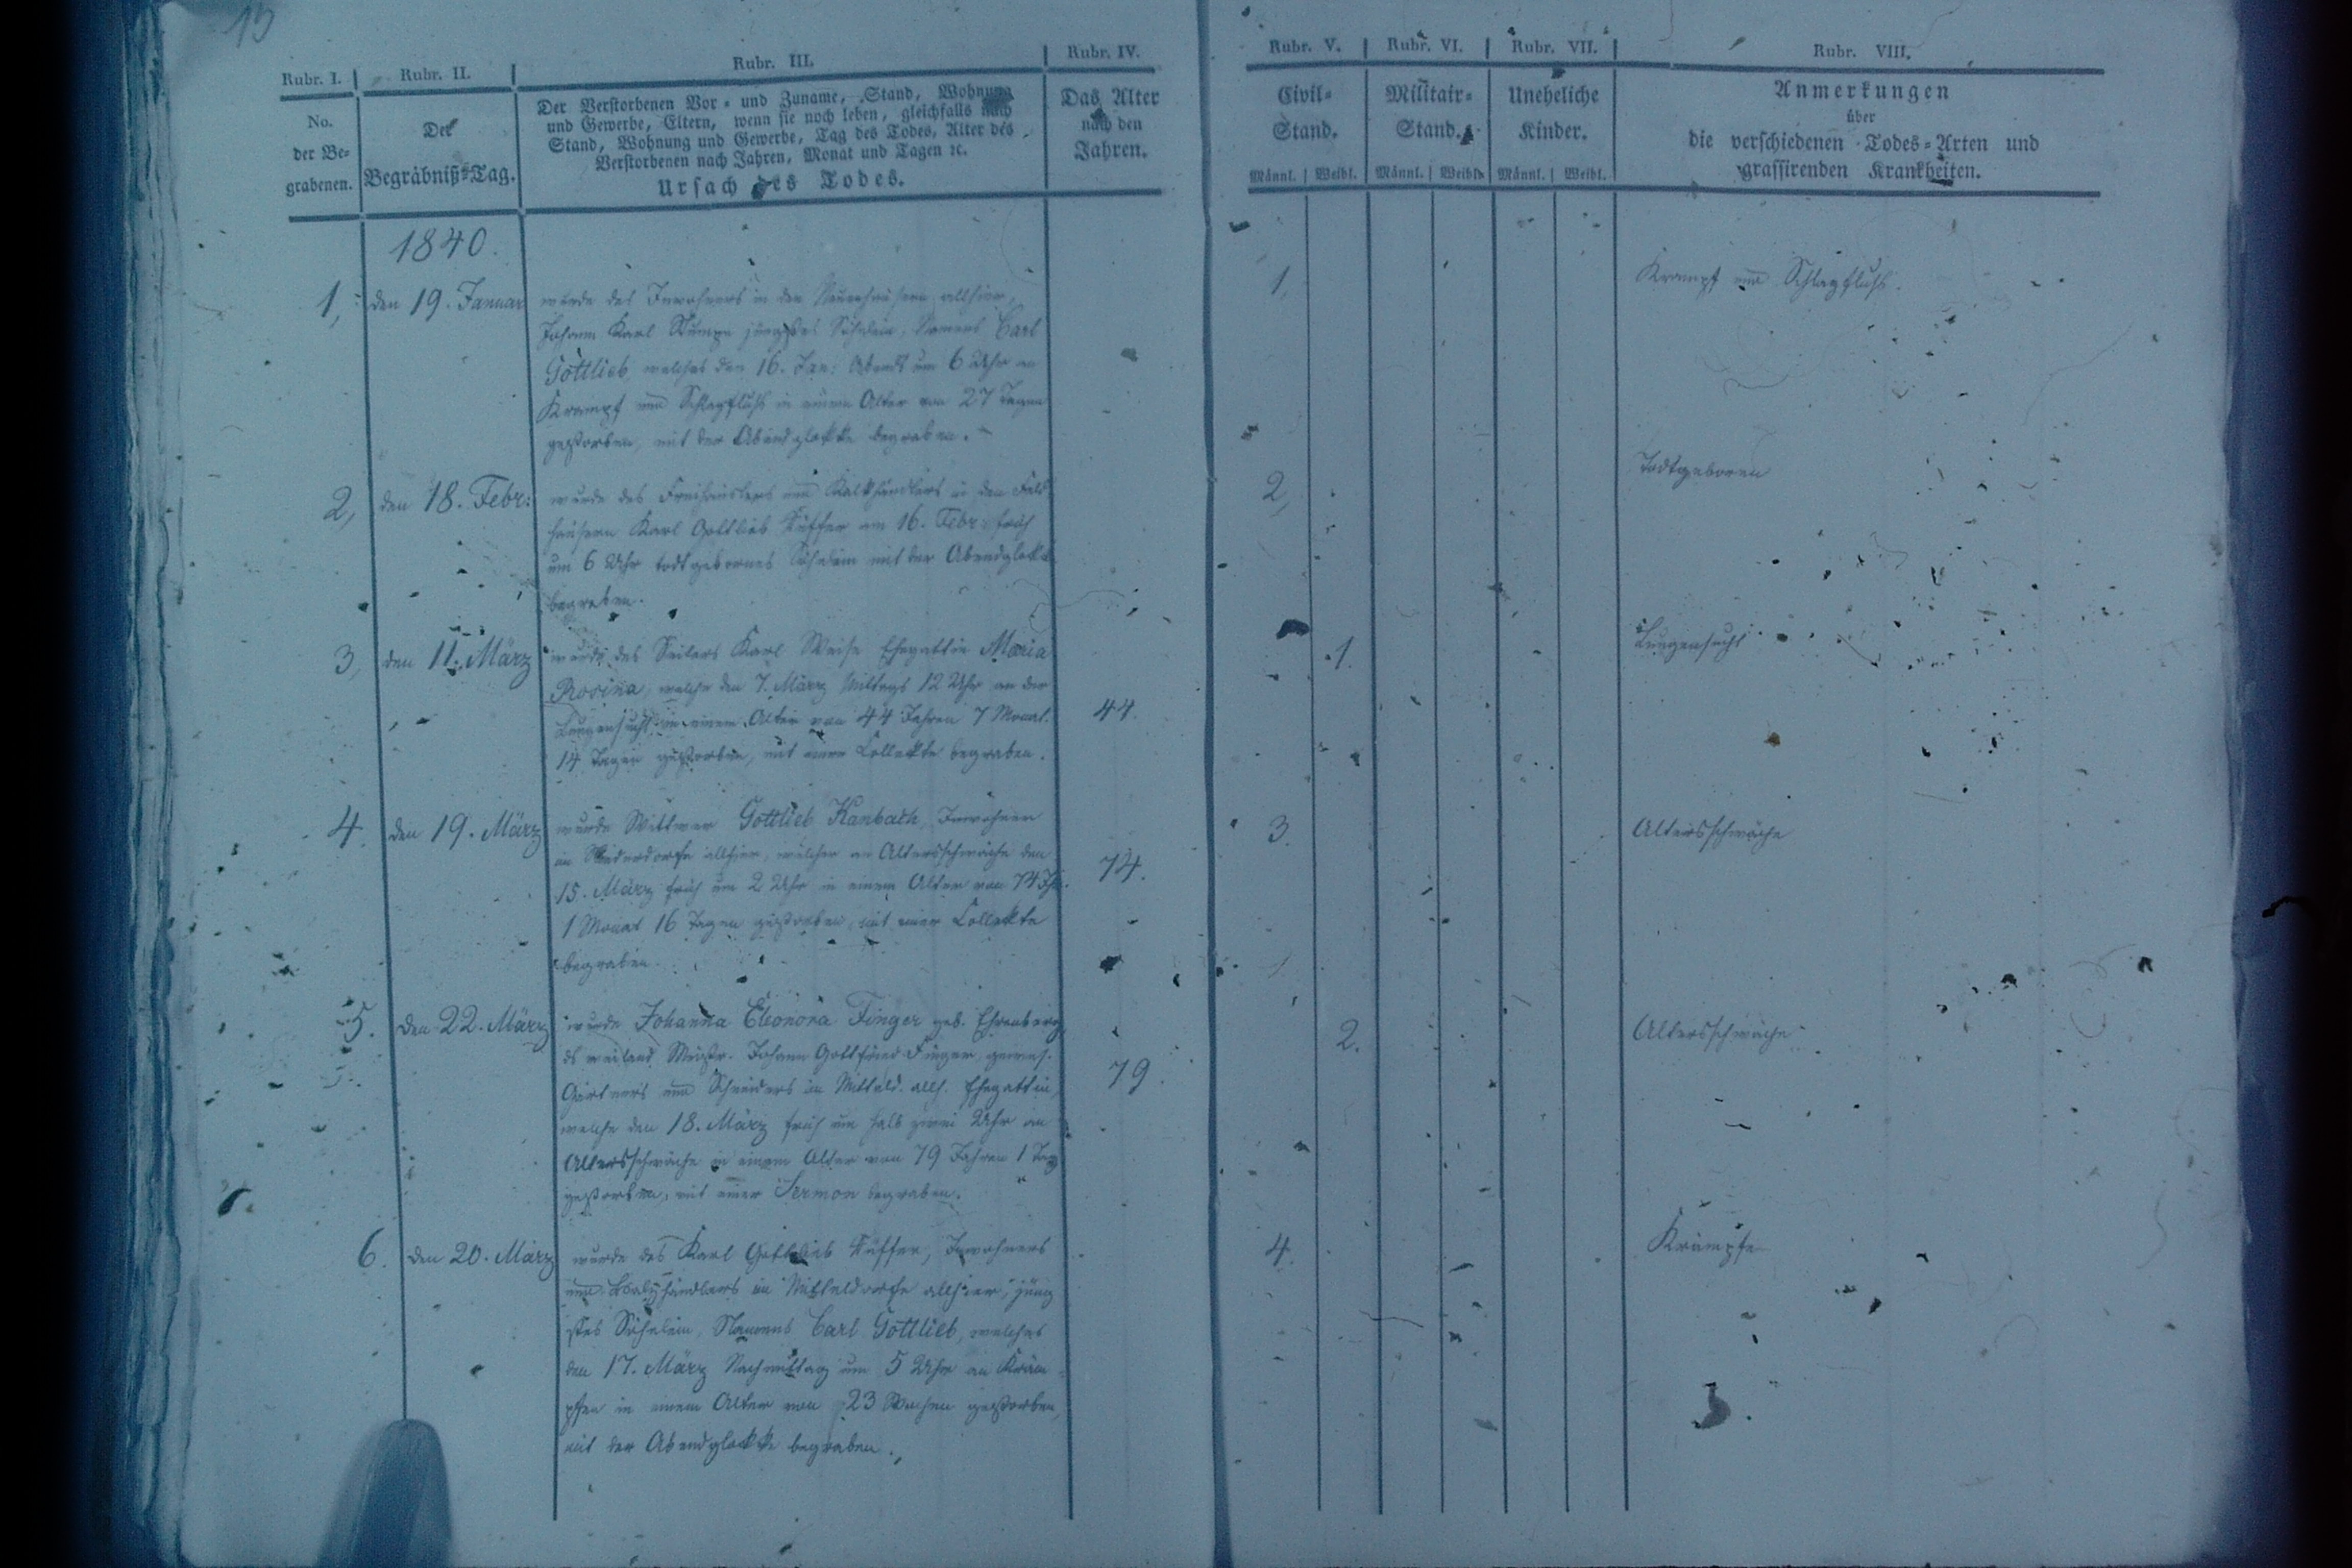 15
Rubr. I. Rubr. II. Rubr. III. Rubr. IV. Rubr. V. Rubr. VI. Rubr. VII. Rubr. VIII.
No.
der Be-
grabenen.
Der
Begräbniß-Tag.
Der Verstorbenen Vor- und Zuname, Stand, Wohnung
und Gewerbe, Eltern, wenn sie noch leben, gleichfalls nach
Stand, Wohnung und Gewerbe, Tag des Todes, Alter des
Verstorbenen nach Jahren, Monat und Tagen ꝛc.
Ursach des Todes.
Das Alter
nach den
Jahren.
Civil-
Stand.
Männl. Weibl.
Militair-
Stand.
Männl. Weibl.
Uneheliche
Kinder.
Männl. Weibl.
Anmerkungen
über
die verschiedenen Todes-Arten und
grassirenden Krankheiten.
1840.
1, den 19. Januar
wurde des Inwohners in den allhier,
Johann Karl jüngstes Söhnlein, Namens Carl
Gottlieb, welches den 16. Jan: Abends um 6 Uhr an
Krampf und Schlagfluß in einem Alter von 27 Tagen
gestorben, mit der Abendglokke begraben.
1,
Krampf und Schlagfluß.
2, den 18. Febr:
wurde des Freihäuslers und in den Feld
häusern Karl Gottlieb Küffer am 16. Febr: früh
um 6 Uhr todtgebornes Söhnlein mit der Abendglokke
begraben.
2,
Todtgeboren
3, den 11. März
wurde des Seilers Karl Weise Ehegattin Maria
Rosina, welche den 7. März Mittags 12 Uhr an der
Lungensucht in einem Alter von 44 Jahren 7 Monat.
14 Tagen gestorben, mit einer Collekte begraben.
44.
1.
Lungensucht
4. den 19. März
wurde Wittwer Gottlieb Hanbach, Inwohner
im Niederdorfe allhier, welcher an Altersschwäche den
15. März früh um 2 Uhr in einem Alter von 74 Jhr.
1 Monat 16 Tagen gestorben, mit einer Collekte
begraben.
74.
3.
Altersschwäche
5. den 22. März
wurde Johanna Eleonora Finger geb. Ehrenberg
ds weiland Mstr. Johann Gottfried Finger, gewes.
Gärtners und Schneiders im Mitteld. allh. Ehegattin,
welche den 18. März früh um halb zwei Uhr an
Altersschwäche in einem Alter von 79 Jahren 1 Tag
gestorben, mit einer Sermon begraben.
79.
2.
Altersschwäche
6. den 20. März
wurde des Karl Gottlieb Küffer, Inwohners
und im Mitteldorfe allhier, jüng
stes Söhnlein, Namens Carl Gottlieb, welches
den 17. März Nachmittag um 5 Uhr an Kräm
pfen in einem Alter von 23 Wochen gestorben,
mit der Abendglokke begraben.
4.
Krämpfe